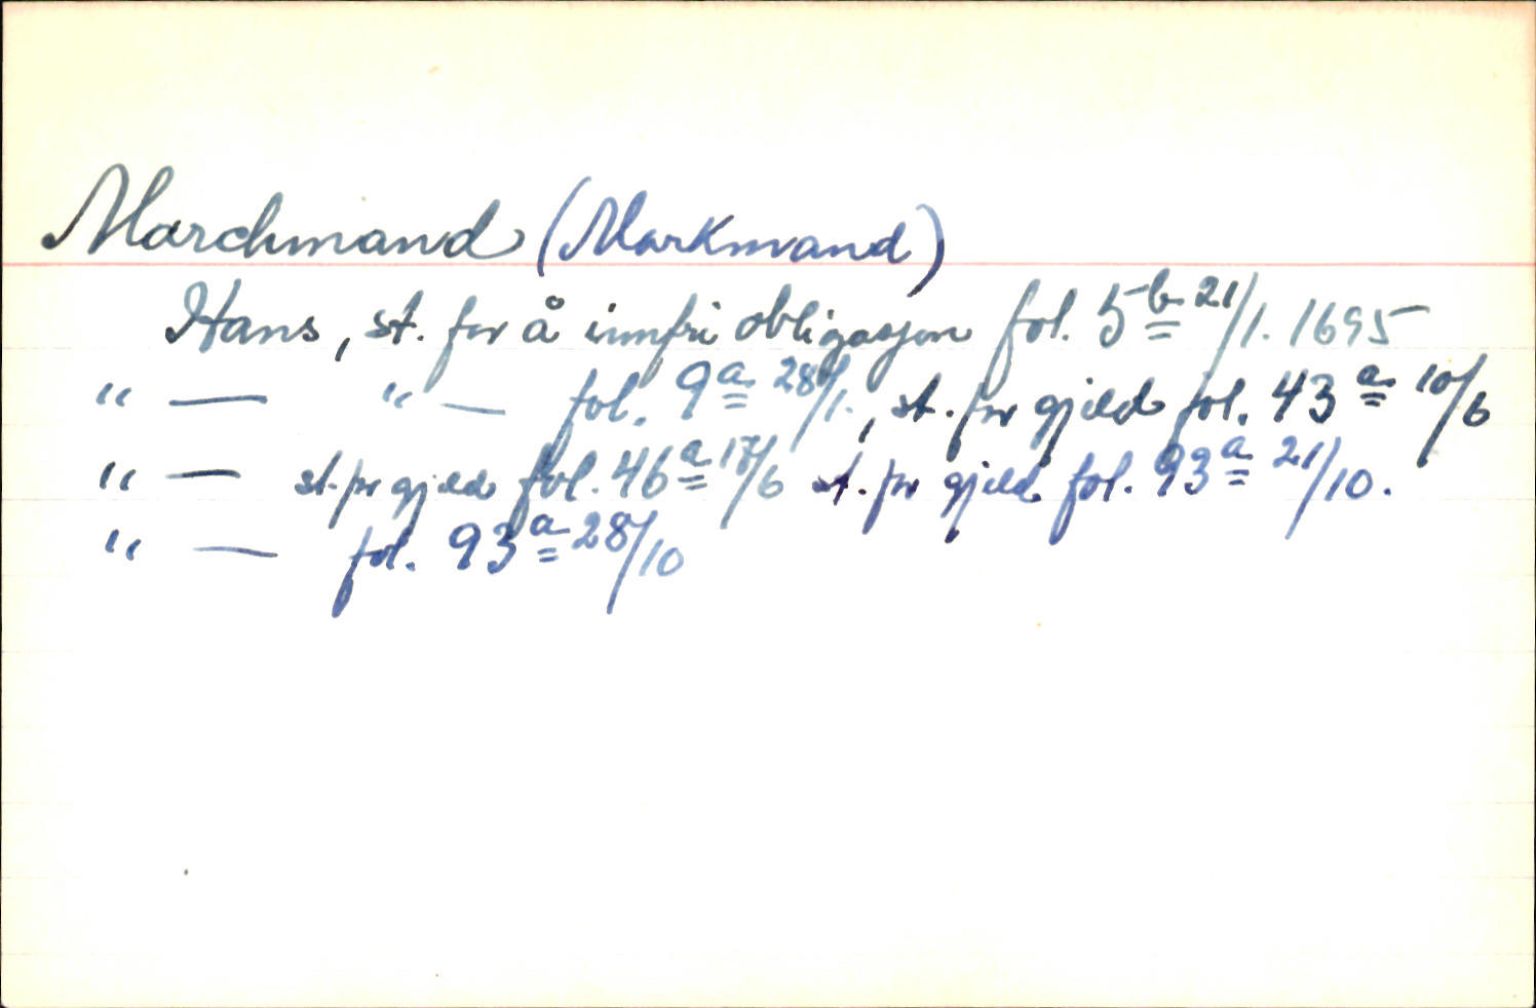 Marchmand (Markmand)
Hans, st. for å innfri obligasjon fol. 5b 21/1. 1695
" — " — fol. 9a 28/1., st. for gjeld fol. 43a 10/6
" — st. for gjeld fol. 46a 17/6 st. for gjeld fol. 93a 21/10.
" — fol. 93a 28/10